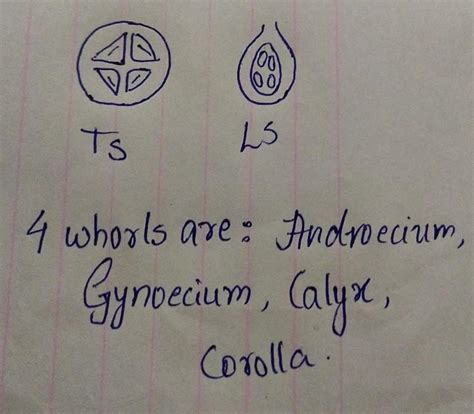 TS LS
4 whorls are: Androecium,
Gynoecium, Calyx,
Corolla.